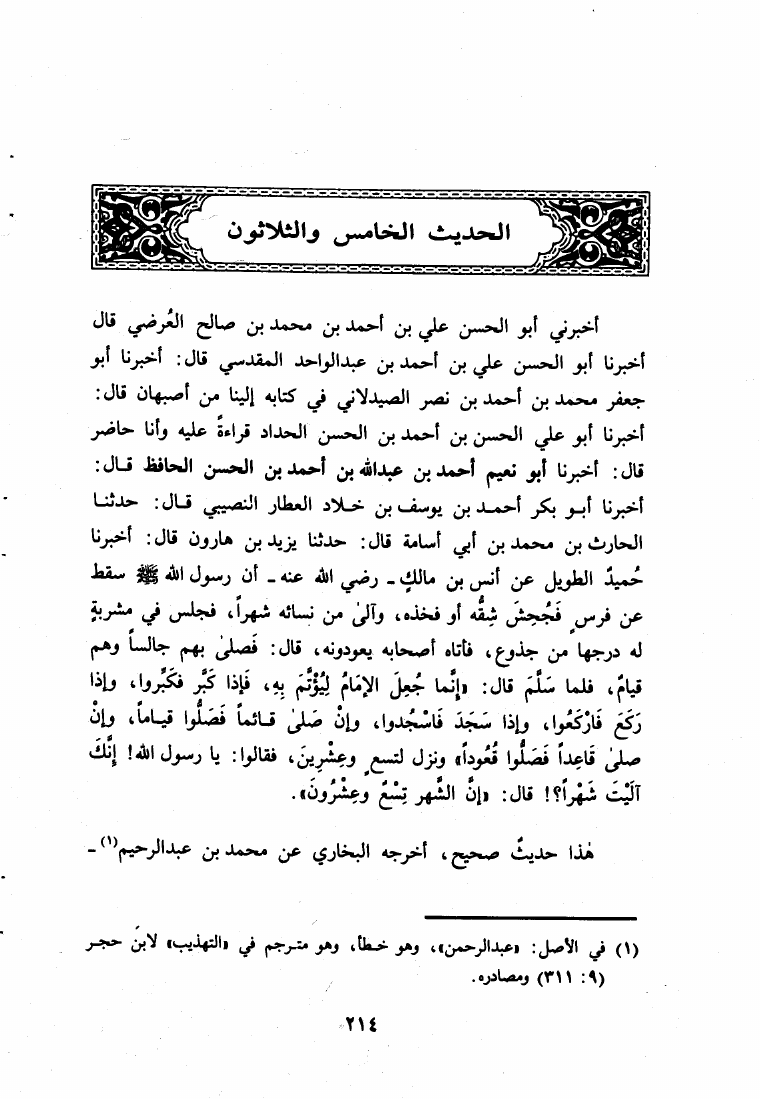 الحديث الخامس والثلاثون
أخبرني أبو الحسن علي بن أحمد بن محمد بن صالح العُرضي قال
أخبرنا أبو الحسن علي بن أحمد بن عبدالواحد المقدسي قال: أخبرنا أبو
جعفر محمد بن أحمد بن نصر الصيدلاني في كتابه إلينا من أصبهان قال:
أخبرنا أبو علي الحسن بن أحمد بن الحسن الحداد قراءةً عليه وأنا حاضر
قال: أخبرنا أبو نعيم أحمد بن عبدالله بن أحمد بن الحسن الحافظ قال:
أخبرنا أبو بكر أحمد بن يوسف بن خلاد العطار النصيبي قال: حدثنا
الحارث بن محمد بن أبي أسامة قال: حدثنا يزيد بن هارون قال: أخبرنا
حُميدٌ الطويل عن أنس بن مالكٍ ـ رضي الله عنه ـ أن رسول الله ﷺ سقط
عن فرسٍ فَجُحِشَ شِقُّه أو فخذه، وآلىٰ من نسائه شهراً، فجلس في مشربةٍ
له درجها من جذوع، فأتاه أصحابه يعودونه، قال: فَصلىٰ بهم جالساً وهم
قيامٌ، فلما سَلَّمَ قال: «إنَّما جُعِلَ الإمَامُ لِيُؤْتَّمَ بِهِ، فَإذا كَبَّر فكَبِّروا، وإذا
رَكَعَ فَارْكَعُوا، وإذا سَجَدَ فَاسْجُدوا، وإنْ صَلىٰ قائماً فَصَلُّوا قياماً، وإنْ
صلىٰ قَاعِداً فَصَلُّوا قُعُوداً» ونزل لتسعٍ وعِشْرِينَ، فقالوا: يا رسول الله! إنَّكَ
آلَيْتَ شَهْراً؟! قال: «إنَّ الشَّهر تِسْعٌ وَعِشْرُونَ».
هٰذا حديثٌ صحيح، أخرجه البخاري عن محمد بن عبدالرحيم(١) ـ
(١) في الأصل: «عبدالرحمن»، وهو خطأ، وهو مترجم في «التهذيب» لابن حجر
(٩: ٣١١) ومصادره.
٢١٤